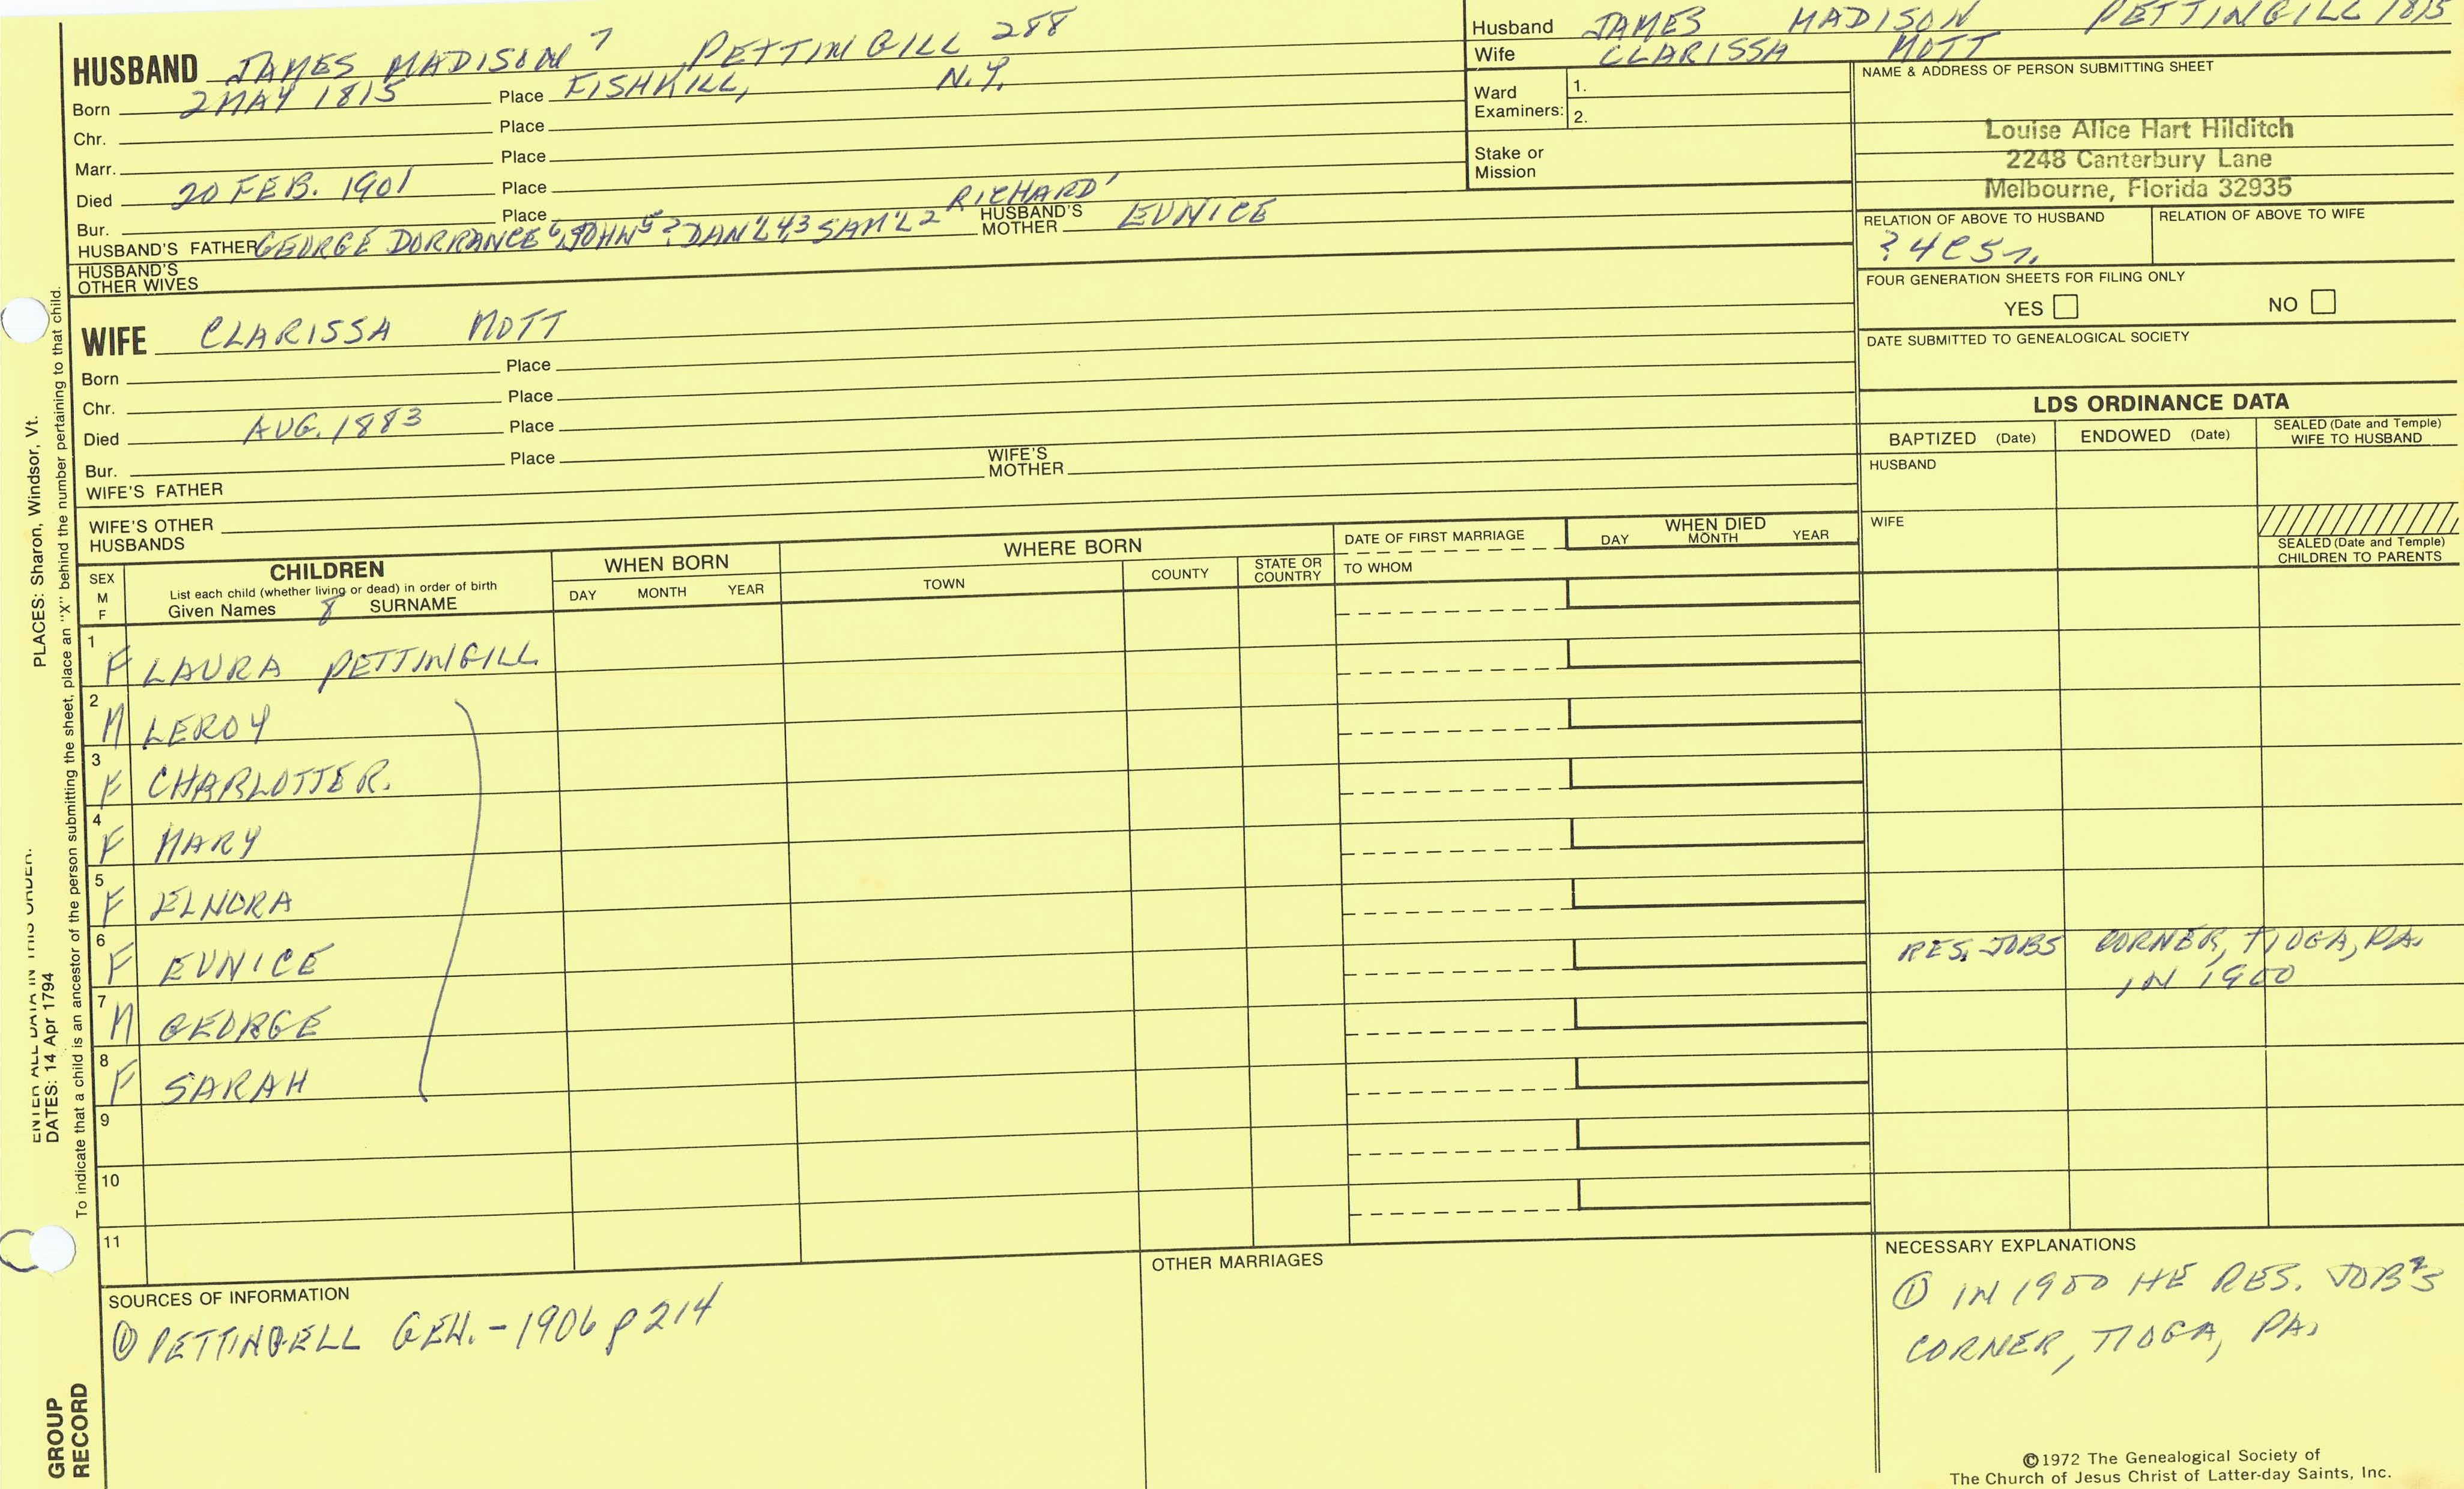 HUSBAND JAMES MADISON 7 PETTINGILL 288
Born 2 MAY 1815 Place FISHKILL, N.Y.
Chr. Place
Marr. Place
Died 20 FEB. 1901 Place
Bur. Place
HUSBAND'S FATHER GEORGE DORRANCE 6, JOHN 5? DAN'L 4,3 SAM'L 2 RICHARD' HUSBAND'S MOTHER EUNICE
HUSBAND'S OTHER WIVES
WIFE CLARISSA MOTT
Born Place
Chr. Place
Died AUG. 1883 Place
Bur. Place
WIFE'S FATHER WIFE'S MOTHER
WIFE'S OTHER HUSBANDS
Husband JAMES MADISON PETTINGILL 1815
Wife CLARISSA MOTT
Ward Examiners: 1.
2.
Stake or Mission
NAME & ADDRESS OF PERSON SUBMITTING SHEET
Louise Alice Hart Hilditch
2248 Canterbury Lane
Melbourne, Florida 32935
RELATION OF ABOVE TO HUSBAND RELATION OF ABOVE TO WIFE
FOUR GENERATION SHEETS FOR FILING ONLY
YES NO
DATE SUBMITTED TO GENEALOGICAL SOCIETY
LDS ORDINANCE DATA
BAPTIZED (Date) ENDOWED (Date) SEALED (Date and Temple) WIFE TO HUSBAND
HUSBAND
WIFE
SEALED (Date and Temple) CHILDREN TO PARENTS
SEX M F
CHILDREN
List each child (whether living or dead) in order of birth
Given Names 8 SURNAME
WHEN BORN
DAY MONTH YEAR
WHERE BORN
TOWN COUNTY STATE OR COUNTRY
DATE OF FIRST MARRIAGE
TO WHOM
WHEN DIED
DAY MONTH YEAR
1 F LAURA PETTINGILL
2 M LEROY
3 F CHARLOTTE R.
4 F MARY
5 F ELNORA
6 F EUNICE RES. JOBS CORNER, TIOGA, PA.
IN 1900
7 M GEORGE
8 F SARAH
9
10
11
SOURCES OF INFORMATION
① PETTINGELL GEN. - 1906 p 214
OTHER MARRIAGES
NECESSARY EXPLANATIONS
① IN 1900 HE RES. JOB'S
CORNER, TIOGA, PA.
©1972 The Genealogical Society of
The Church of Jesus Christ of Latter-day Saints, Inc.
ENTER ALL DATA IN THIS ORDER:
DATES: 14 Apr 1794
PLACES: Sharon, Windsor, Vt.
To indicate that a child is an ancestor of the person submitting the sheet, place an "X" behind the number pertaining to that child.
GROUP
RECORD